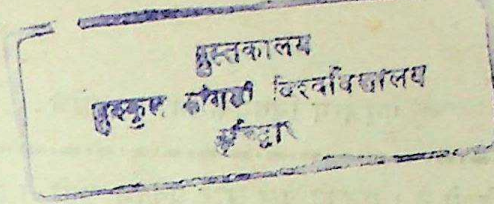 पुस्तकालय
गुरुकुल कांगडी विश्वविद्यालय
हरिद्वार